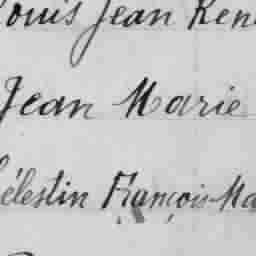 Louis Jean René
Jean Marie
Célestin François-Ma